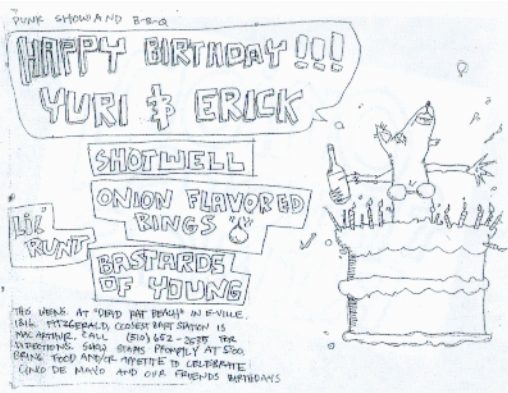 PUNK SHOW AND B-B-Q
HAPPY BIRTHDAY!!!
YURI & ERICK
SHOTWELL
ONION FLAVORED
RINGS
LIL'
RUNT
BASTARDS
OF YOUNG
THIS BEING AT "DEAD RAT BEACH" IN E-VILLE.
FITZGERALD, CLOSEST BART STATION IS
MACARTHUR, CALL (510) 652-2585 FOR
DIRECTIONS. SHOW STARTS PROMPTLY AT 5:00.
BRING FOOD AND/OR APPETITE TO CELEBRATE
CINKO DE MAYO AND OUR FRIENDS BIRTHDAYS